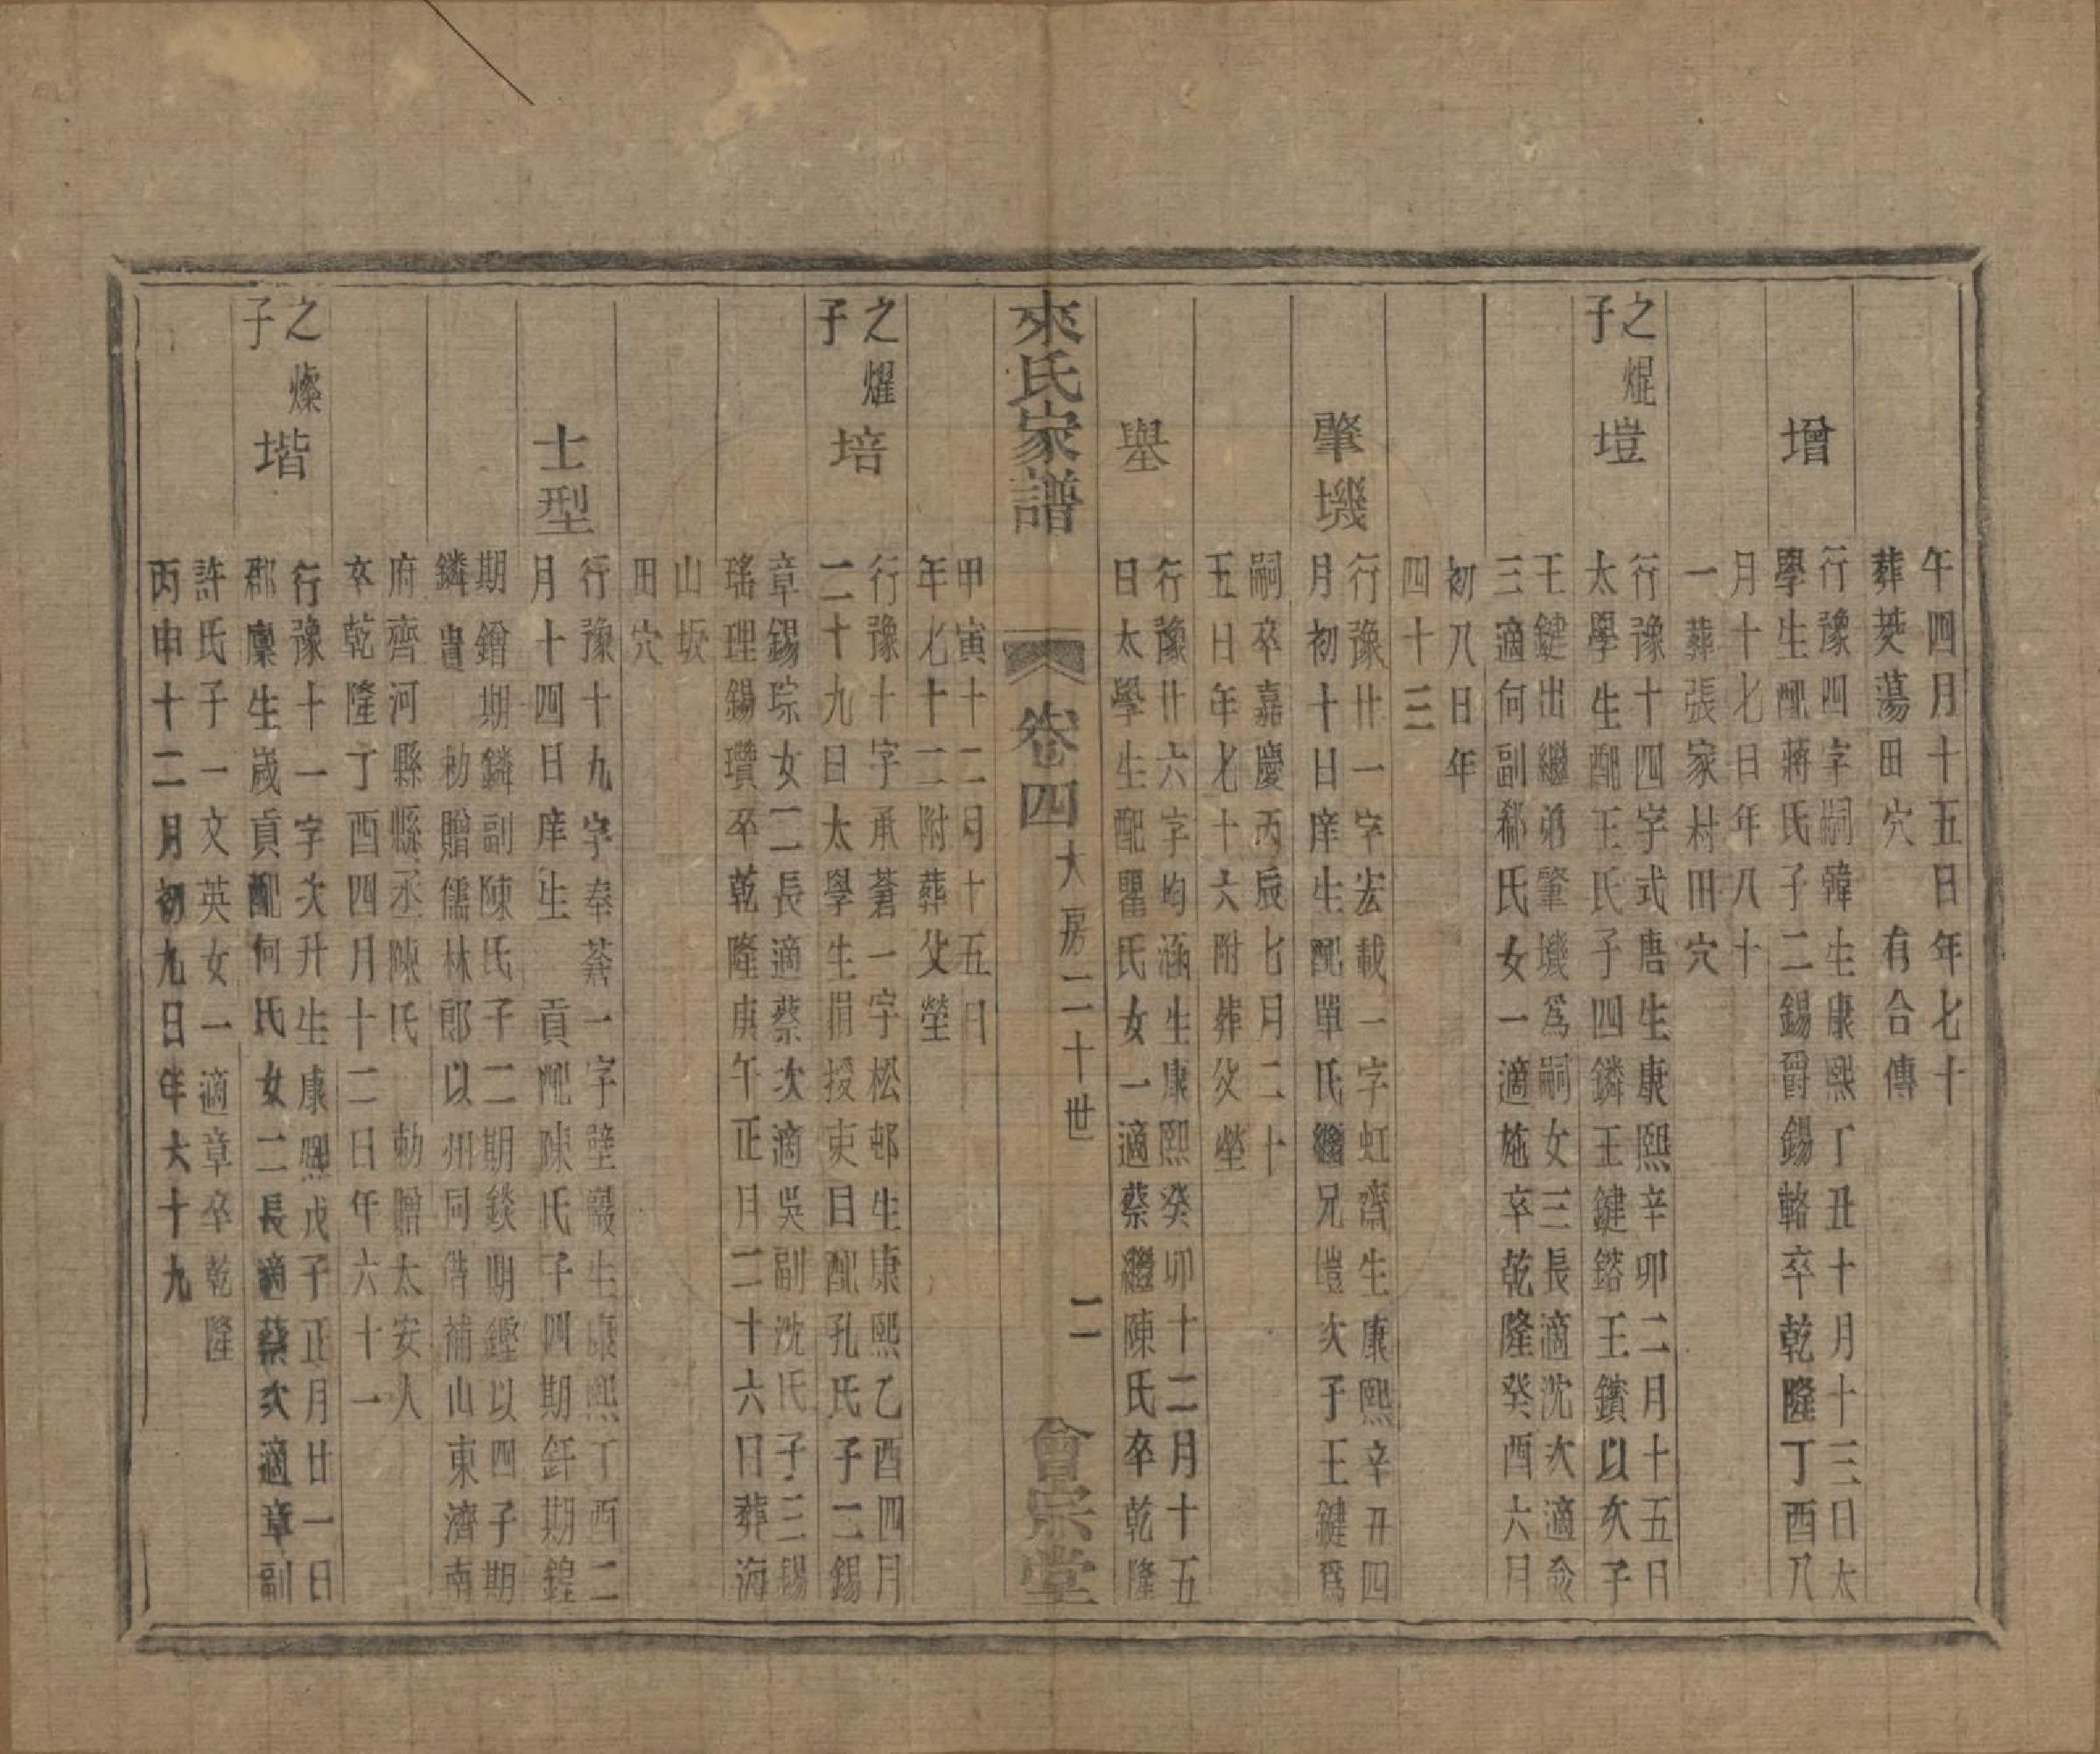 午四月十五日年七十
葬茭蕩田穴　有合傳
增
行豫四字嗣韓生康熙丁丑十月十三日太
學生配蔣氏子二錫爵錫輅卒乾隆丁酉八
月十七日年八十
一葬張家村田穴
之焜子
塏
行豫十四字式唐生康熙辛卯二月十五日
太學生配王氏子四鏻王鍵鎝王鑌以次子
王鍵出繼弟肇墢爲嗣女三長適沈次適俞
三適何副郗氏女一適施卒乾隆癸酉六月
初八日年
四十三
肇墢
行豫廿一字宏載一字虹齋生康熙辛丑四
月初十日庠生配單氏繼兄塏次子王鍵爲
嗣卒嘉慶丙辰七月二十
五日年七十六附葬父塋
壆
行豫廿六字均涵生康熙癸卯十二月十五
日太學生配瞿氏女一適蔡繼陳氏卒乾隆
來氏家譜
卷四
大房二十世
二
會宗堂
甲寅十二月十五日
年七十二附葬父塋
之燿子
培
行豫十字承蒼一字松邨生康熙乙酉四月
二十九日太學生捐授吏目配孔氏子二錫
章錫琮女二長適蔡次適吳副沈氏子三錫
瑤理錫瓚卒乾隆庚午正月二十六日葬海
山坂
田穴
士型
行豫十九字奉莪一字壁巖生康熙丁酉二
月十四日庠生　貢配陳氏子四期釬期鍠
期鐕期鏻副陳氏子二期錟期鏗以四子期
鏻貴　勅贈儒林郎以州同借補山東濟南
府齊河縣縣丞陳氏　勅贈太安人
卒乾隆丁酉四月十二日年六十一
之燦子
堦
行豫十一字次升生康熙戊子正月廿一日
郡廩生歲貢配何氏女二長適蔡次適章副
許氏子一文英女一適章卒乾隆
丙申十二月初九日年六十九